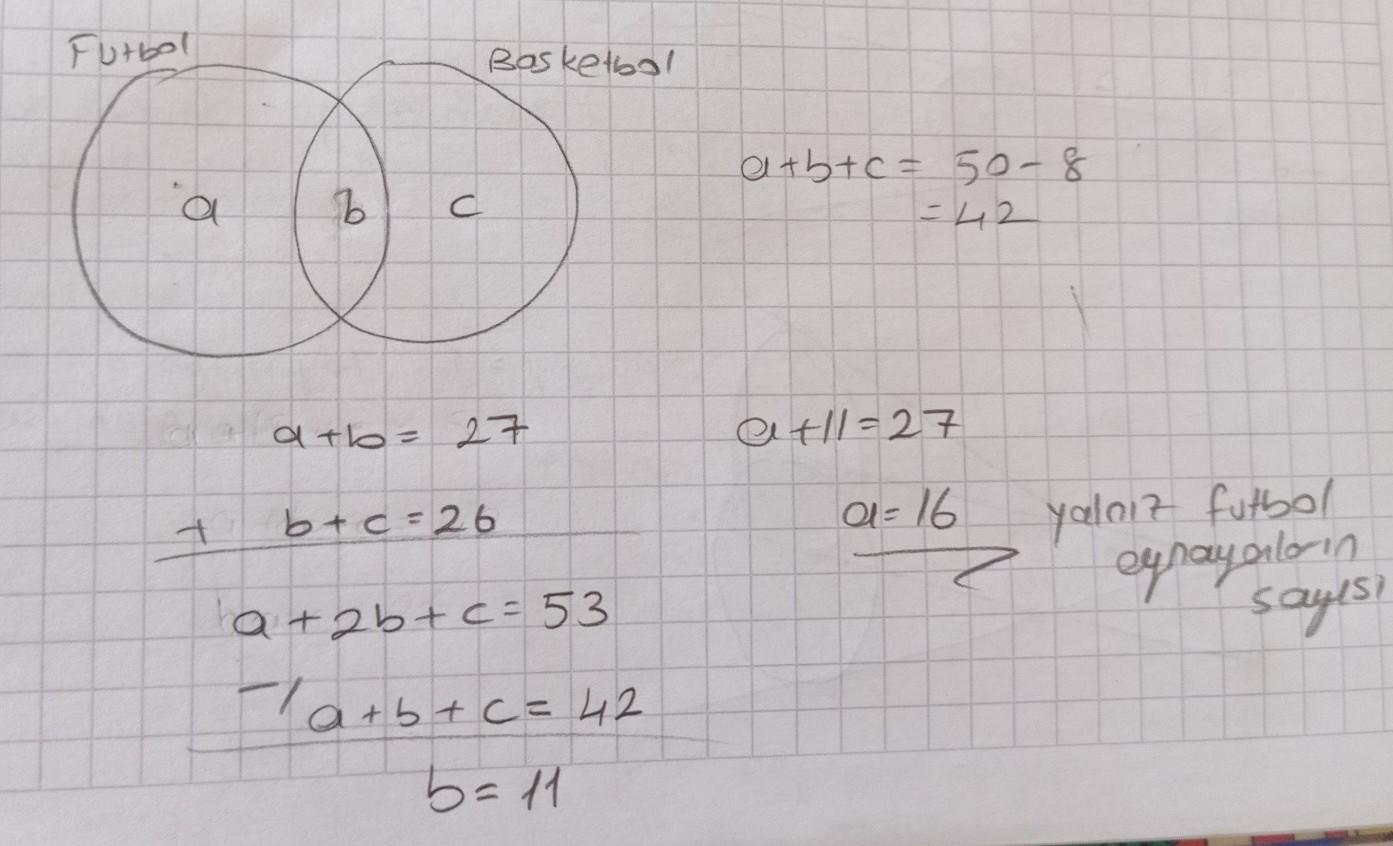 Futbol
Basketbol
a
b
c
a+b+c = 50-8
= 42
a+b = 27
+ b+c = 26
a+2b+c = 53
-/ a+b+c = 42
b = 11
a+11 = 27
a = 16
yalnız futbol
oynayanların
sayısı